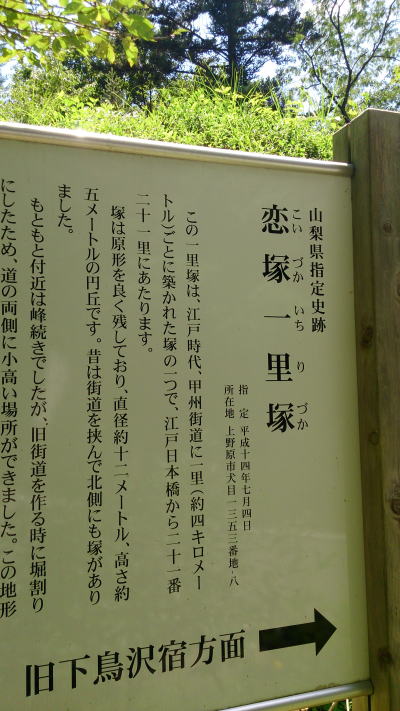 山梨県指定史跡
恋塚一里塚
こいづかいちりづか
指定 平成十四年七月四日
所在地 上野原市犬目一三五三番地-八
この一里塚は、江戸時代、甲州街道に一里(約四キロメー
トル)ごとに築かれた塚の一つで、江戸日本橋から二十一番
二十一里にあたります。
塚は原形を良く残しており、直径約十二メートル、高さ約
五メートルの円丘です。昔は街道を挟んで北側にも塚があり
ました。
もともと付近は峰続きでしたが、旧街道を作る時に堀割り
にしたため、道の両側に小高い場所ができました。この地形
旧下鳥沢宿方面